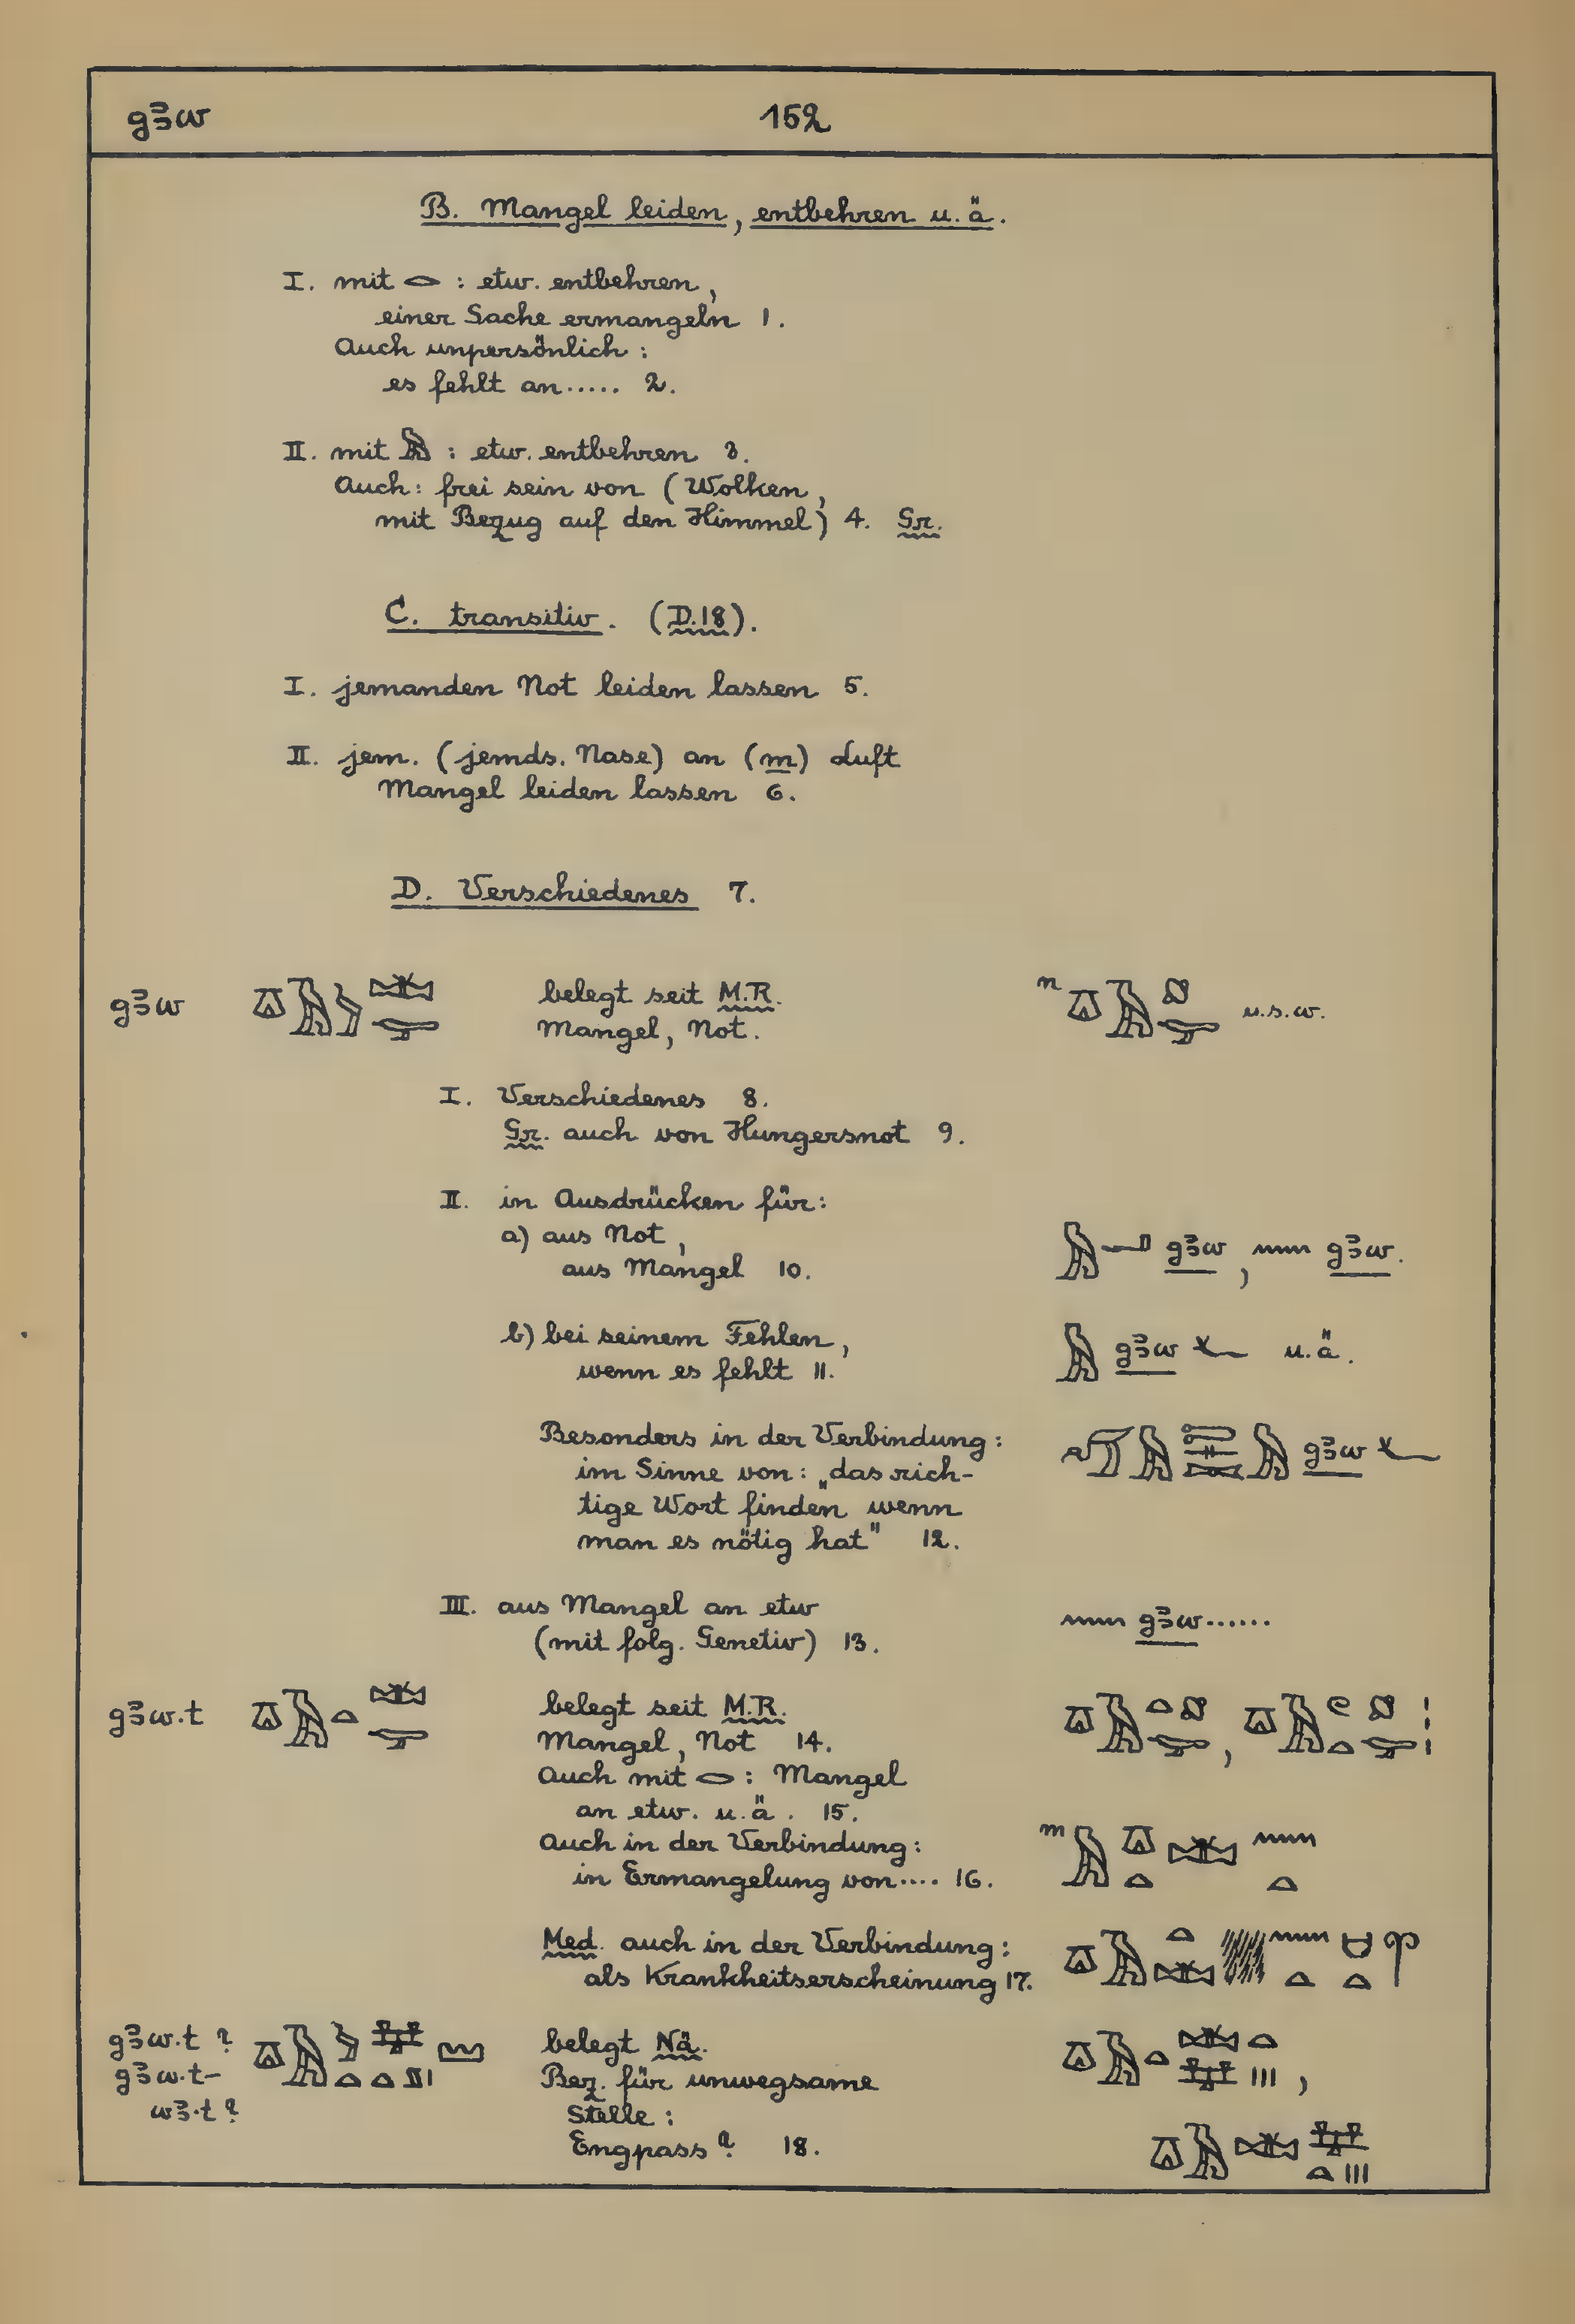 gꜣw 152
B. Mangel leiden, entbehren u.ä.
I. mit 𓂋 : etw. entbehren,
einer Sache ermangeln 1.
Auch unpersönlich:
es fehlt an..... 2.
II. mit 𓅓 : etw. entbehren 3.
Auch: frei sein von (Wolken,
mit Bezug auf den Himmel) 4. Gr.
C. transitiv. (D.18).
I. jemanden Not leiden lassen 5.
II. jem. (jemds. Nase) an (m) Luft
Mangel leiden lassen 6.
D. Verschiedenes 7.
gꜣw belegt seit M.R. n u.s.w.
Mangel, Not.
I. Verschiedenes 8.
Gr. auch von Hungersnot 9.
II. in Ausdrücken für:
a) aus Not, gꜣw, 𓈖 gꜣw.
aus Mangel 10.
b) bei seinem Fehlen, 𓅓 gꜣw 𓆑 u.ä.
wenn es fehlt 11.
Besonders in der Verbindung: gꜣw 𓆑
im Sinne von: „das rich-
tige Wort finden wenn
man es nötig hat" 12.
III. aus Mangel an etw 𓈖 gꜣw......
(mit folg. Genetiv) 13.
gꜣw.t belegt seit M.R.
Mangel, Not 14.
Auch mit 𓂋: Mangel
an etw. u.ä. 15.
Auch in der Verbindung: m
in Ermangelung von.... 16.
Med. auch in der Verbindung:
als Krankheitserscheinung 17.
gꜣw.t ? belegt Nä.
gꜣw.t- Bez. für unwegsame
wꜣ.t ? Stelle:
Engpass ? 18.